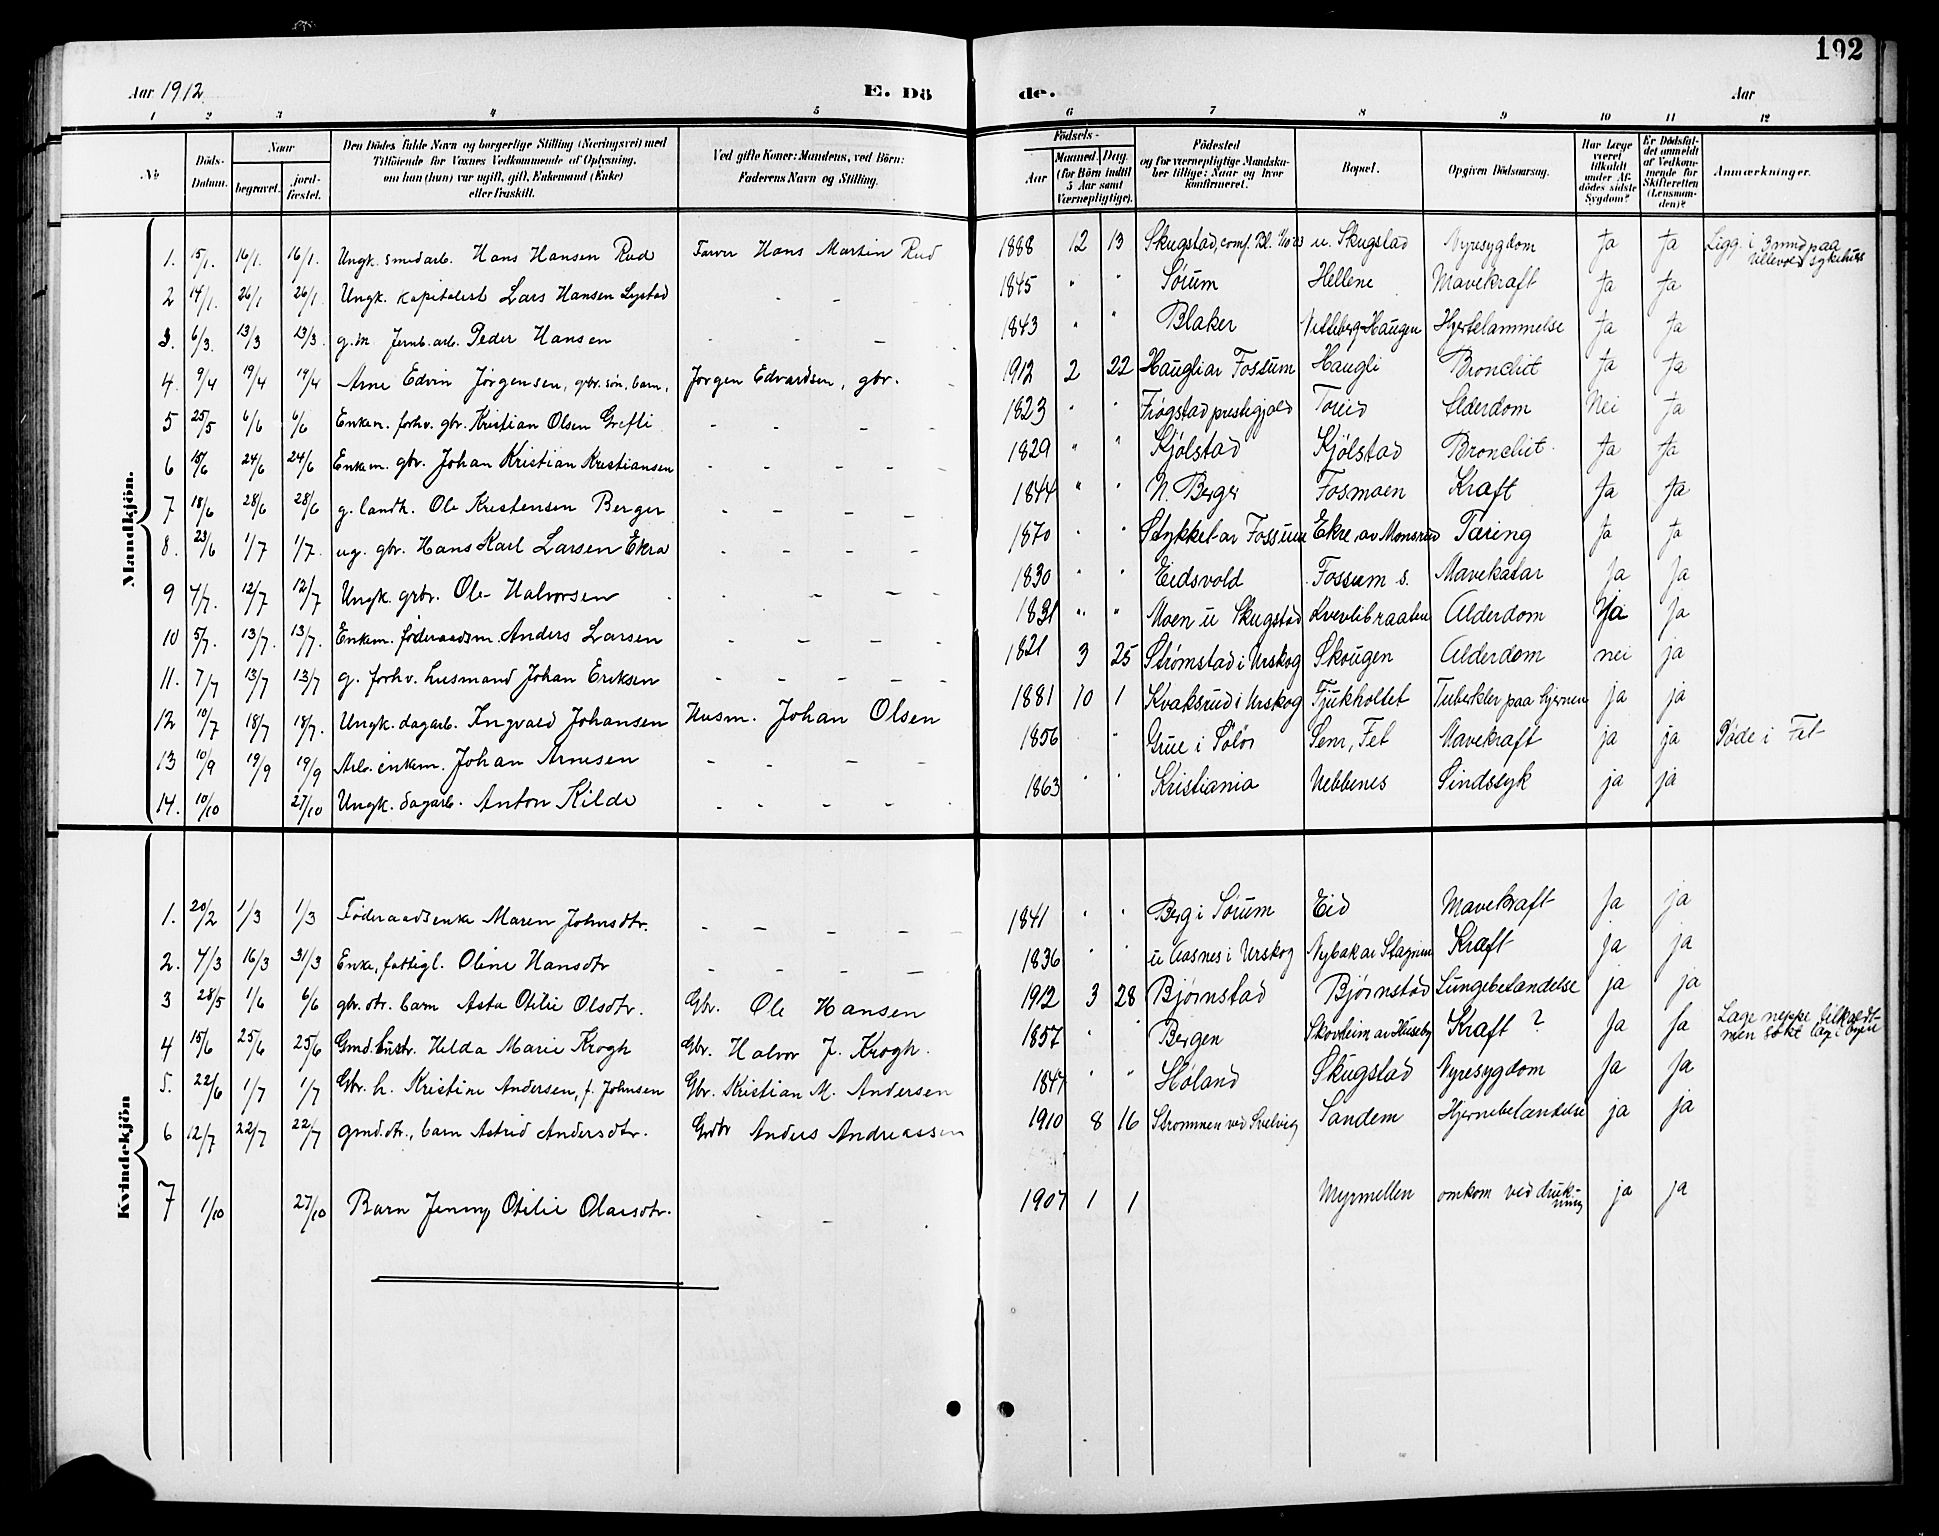 192
Aar 1912.
E. Dö
de.
Aar
1 2 3 4 5 6 7 8 9 10 11 12
No
Döds-Datum.
Naar
begravet.
jord-fæstet.
Den Dödes fulde Navn og borgerlige Stilling (Næringsvei) med
Tilföiende for Voxnes Vedkommende af Oplysning,
om han (hun) var ugift, gift, Enkemand (Enke)
eller fraskilt.
Ved gifte Koner: Mandens, ved Börn:
Faderens Navn og Stilling.
Födsels-
Aar
Maaned. Dag.
(for Börn indtil
5 Aar samt
Værnepligtige).
Födested
og for værnepligtige Mandskaber tillige: Naar og hvor
konfirmeret.
Bopæl.
Opgiven Dödsaarsag.
Har Læge
været
tilkaldt
under Afdödes sidste
Sygdom?
Er Dödsfaldet anmeldt
af Vedkommende for
Skifteretten
(Lensmanden)?
Anmærkninger.
Mandkjön.
1. 15/1. 16/1. 16/1. Ungk. smedarb. Hans Hansen Rud Farver Hans Martin Rud 1888 12 13 Skugstad, conf. Bl. u. Skugstad Nyresygdom Ja Ja Ligg. i 3 mnd paa Ullevold sykehus
2 14/1. 26/1 26/1 Ungk. kapitalist Lars Hansen Lystad 1845 " " Sørum Hellene Mavekraft Ja Ja
3. 6/3. 13/3 13/3. g.m Jernb.arb. Peder Hansen 1843 " " Blaker Haugen Hjertelammelse Ja Ja
4. 9/4 19/4 19/4 Arne Edvin Jørgensen, gbr. søn, barn, Jørgen Edvardsen, gbr. 1912 2 22 Haugli av Fossum Haugli Bronchit Ja Ja
5 25/5 6/6 6/6 Enkem. forhv. gbr. Kristian Olsen Grefli 1823 " " Frogstad prestegjæld Toreid Alderdom Nei Ja
6 15/6 24/6 24/6 Enkem. gbr. Johan Kristian Kristiansen 1829 " " Kjølstad Kjølstad Bronchit. Ja Ja
7 18/6 28/6 28/6 g. landh. Ole Kristensen Berger 1844 " " N. Berger Fosmoen Kraft Ja Ja
8. 23/6 1/7 1/7. ug. gbr. Hans Karl Larsen Ekra 1870 " " Stykket av Fossum Ekre av Monsrud Tæring Ja Ja
9 4/7. 12/7 12/7 Ungk. grbr. Ole Halvorsen 1830 " " Eidsvold Fossum s. Mavekatar Ja Ja
10 5/7. 13/7. 13/7. Enkem. føderaadsm. Anders Larsen 1831 " " Moen u Skugstad Kverlibraaten Alderdom Ja ja
11. 7/7 13/7 13/7 g. forhv. husmand Johan Eriksen 1821 3 25 Strømstad i Urskog Skougen Alderdom nei ja
12 10/7 18/7 18/7. Ungk. dagarb. Ingvald Johansen Husm. Johan Olsen 1881 10 1 Kvaksrud i Urskog Tjukholtet Tuberkler paa hjernen ja ja
13 10/9 19/9 19/9 Arb. enkem. Johan Arnesen 1856 " Grue i Solør Sem, Fet Mavekraft ja ja Døde i Fet
14. 10/10 27/10 Ungk. dagarb. Anton Kilde 1863 " " Kristiania Nebbenes Sindssyk ja ja
Kvindekjön
1. 20/2 1/3 1/3 Føderaadsenke Maren Johnsdtr. 1841 " " Berg i Sørum Eid Mavekraft Ja ja
2. 7/3 16/3 31/3 Enke, fattigl. Oline Hansdtr 1836 " " u Aasnes i Urskog Nybak av Kraft ja ja
3 28/5 1/6 6/6 gbr. dtr. barn Asta Otilie Olsdtr. Gbr. Ole Hansen 1912 3 28 Bjørnstad Bjørnstad Lungebetændelse ja ja
4 15/6 25/6 25/6 Gmd. hustr. Hilda Marie Krogh Gbr. Halvor J. Krogh. 1857 " " Bergen Skovheim av Huseby Kraft ? Ja Ja Læge neppe tilkaldt men søkt
5. 22/6 1/7 1/7 Gbr. h. Kristine Andersen, f. Johnsen Gbr. Kristian M. Andersen 1847 " " Høland Skugstad Nyresygdom Ja Ja
6 12/7 22/7 22/7 gmd.dtr., barn Astrid Andersdtr. Grdbr Anders Andreassen 1910 8 16 Strømmen ved Svelvig Sandem Hjernebetændelse ja ja
7 1/10 27/10 Barn Jenny Otilie Olavsdtr. 1907 1 1 Myrmellen omkom ved drukning ja ja